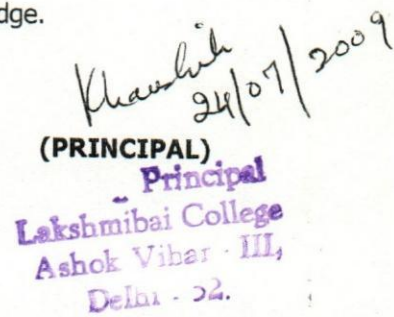 dge.
24/07/2009
(PRINCIPAL)
Principal
Lakshmibai College
Ashok Vihar - III,
Delhi - 52.